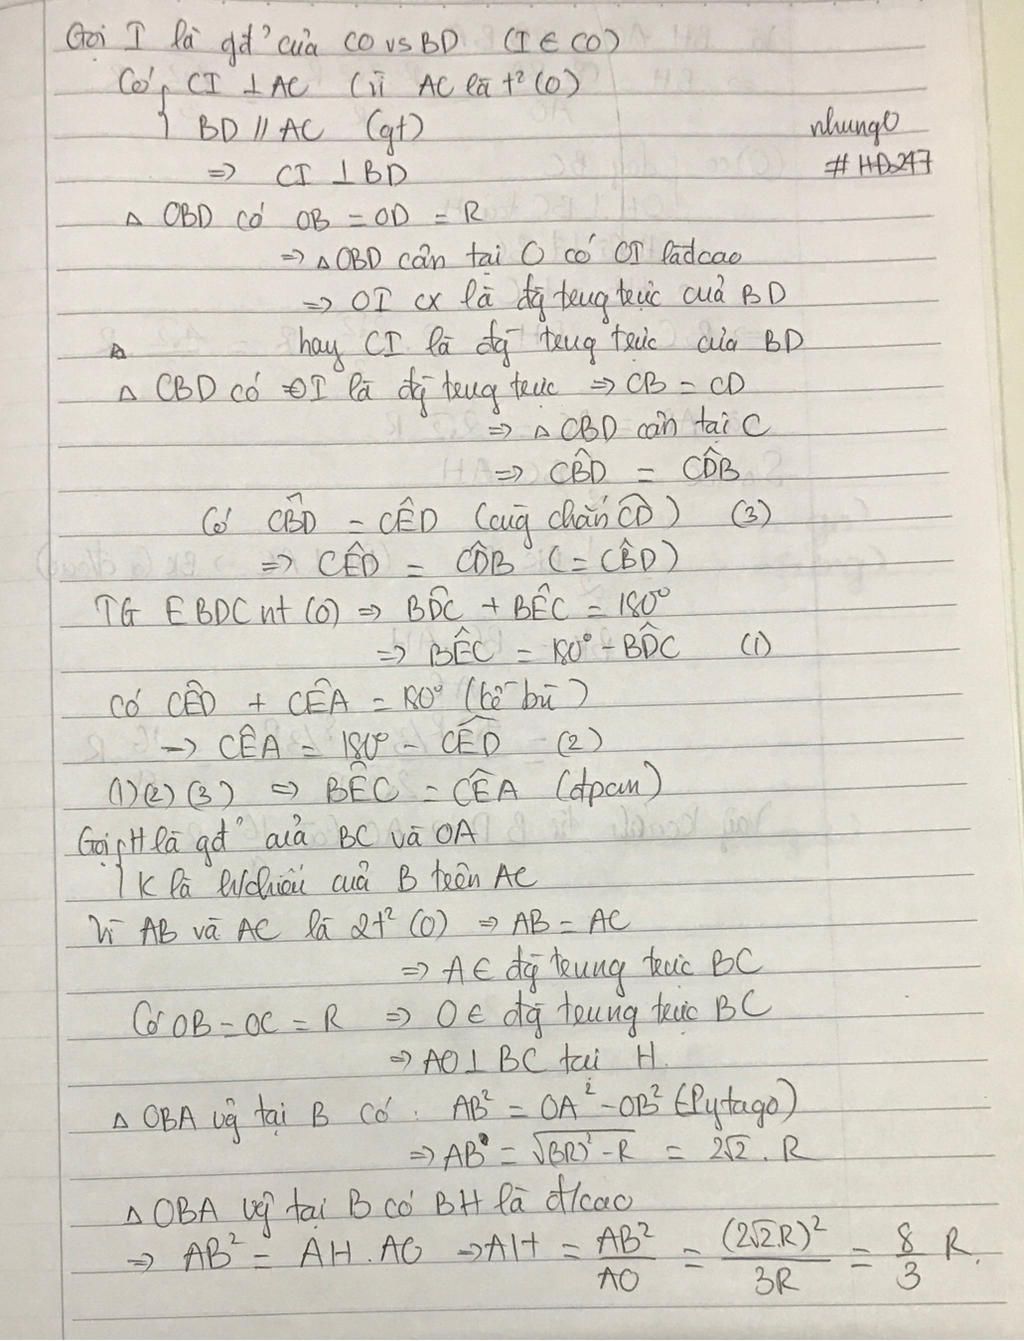 Gọi I là gđ' của CO vs BD (I ∈ CO)
Có { CI ⊥ AC (vì AC là t² (O)
BD // AC (gt)
nhungO
⇒ CI ⊥ BD
# HĐ247
Δ OBD có OB = OD = R
⇒ Δ OBD cân tại O có OI là đcao
⇒ OI cx là đg̃ trug trực của BD
hay CI là đg̃ trug trực của BD
Δ CBD có OI là đg̃ trug trực ⇒ CB = CD
⇒ Δ CBD cân tại C
⇒ CB̂D = CD̂B
Có CB̂D = CÊD (cùg chắn CD) (3)
⇒ CÊD = CD̂B (= CB̂D)
TG EBDC nt (O) ⇒ BD̂C + BÊC = 180°
⇒ BÊC = 180° - BD̂C (1)
Có CÊD + CÊA = 180° (kề bù)
→ CÊA = 180° - CÊD (2)
(1) (2) (3) ⇒ BÊC = CÊA (đpcm)
Gọi { H là gđ' của BC và OA
K là h/chiếu của B trên AC
Vì AB và AC là 2t² (O) ⇒ AB = AC
⇒ A ∈ đg̃ trung trực BC
Có OB = OC = R ⇒ O ∈ đg̃ trung trực BC
⇒ AO ⊥ BC tại H.
Δ OBA vg̃ tại B có : AB² = OA² - OB² (Pytago)
⇒ AB = √(3R)² - R = 2√2 . R
Δ OBA vg̃ tại B có BH là đ/cao
⇒ AB² = AH . AO ⇒ AH = AB²/AO = (2√2.R)²/3R = 8/3 R.